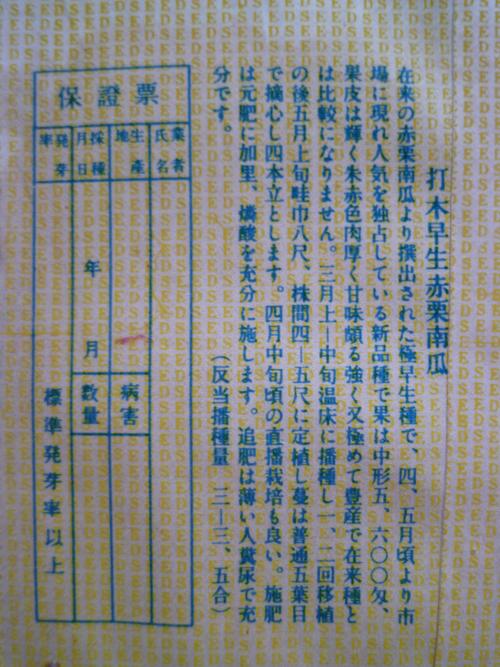 打木早生赤栗南瓜
在来の赤栗南瓜より撰出された極早生種で、四、五月頃より市
場に現れ人気を独占している新品種で果は中形五、六〇〇匁、
果皮は輝く朱赤色肉厚く甘味頗る強く又極めて豊産で在来種と
は比較になりません。三月上—中旬温床に播種し一、二回移植
の後五月上旬畦巾八尺、株間四—五尺に定植し蔓は普通五葉目
で摘心し四本立とします。四月中旬頃の直播栽培も良い。施肥
は元肥に加里、燐酸を充分に施します。追肥は薄い人糞尿で充
分です。
（反当播種量 三—三、五合）
保證票
業者氏名
生産地
採種月日
発芽率
年 月
病害
数量
標準発芽率以上
SEED